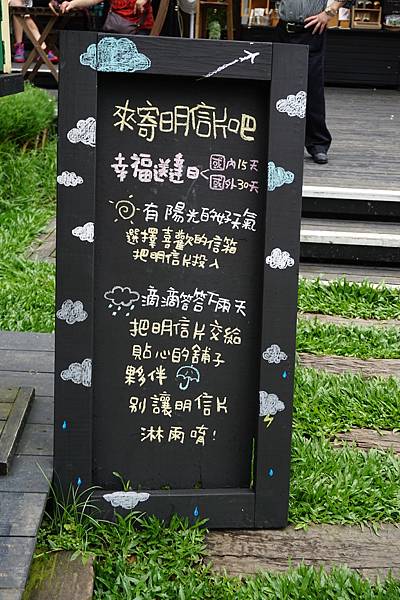 來寄明信片吧
幸福送達日 國內15天
國外30天
有陽光的好天氣
選擇喜歡的信箱
把明信片投入
滴滴答答下雨天
把明信片交給
貼心的舖子
夥伴
別讓明信片
淋雨唷!